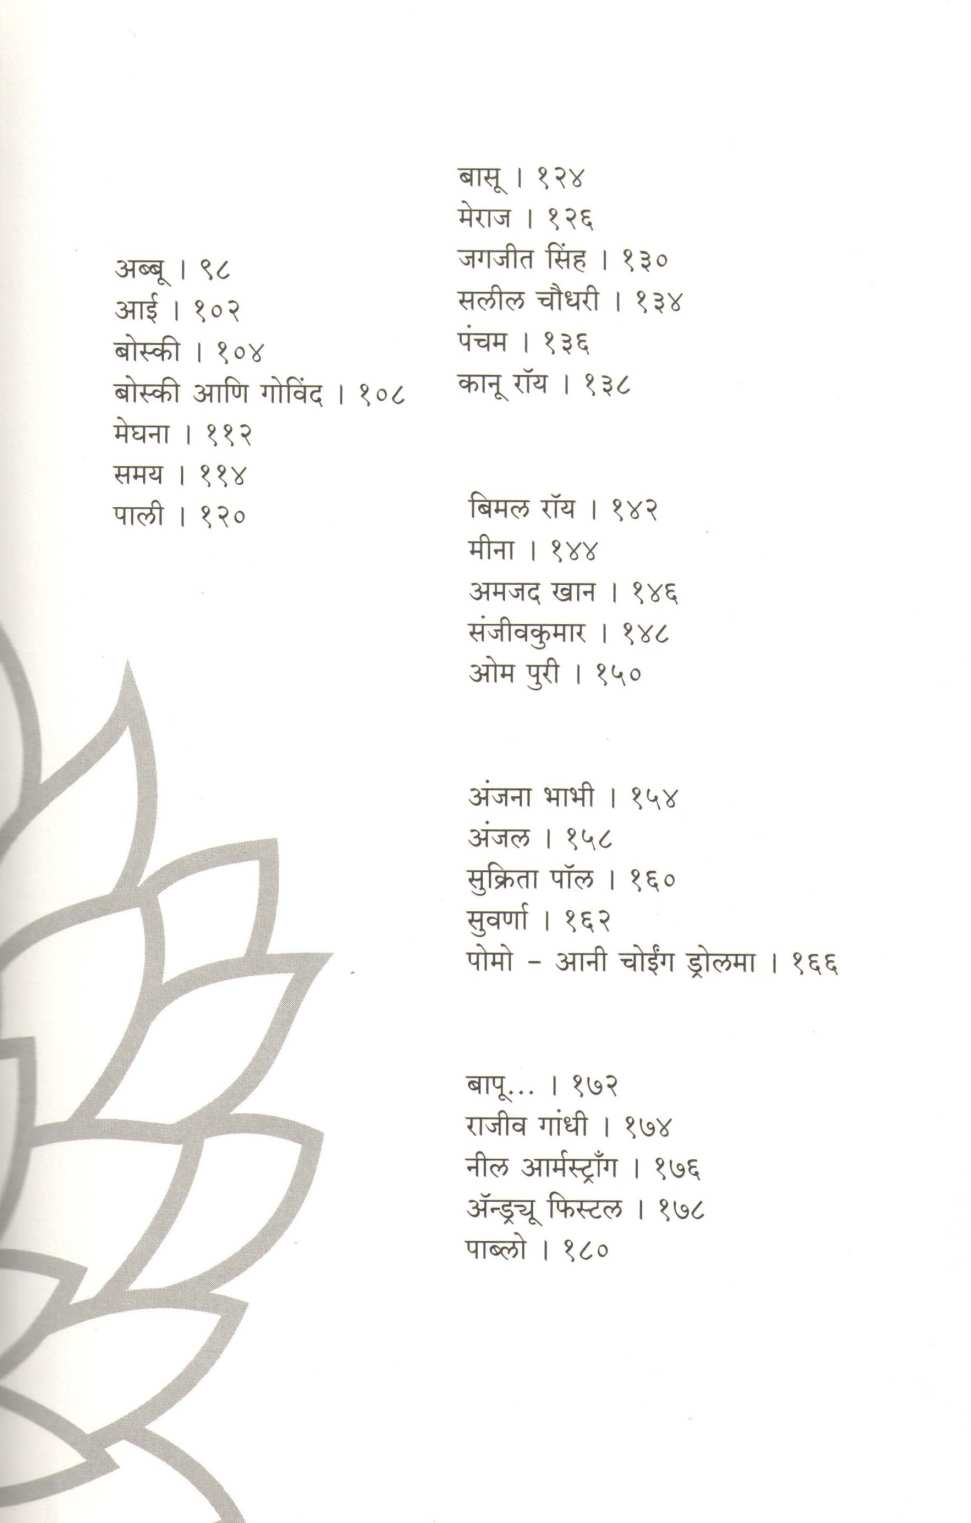 अब्बू । ९८
आई । १०२
बोस्की । १०४
बोस्की आणि गोविंद । १०८
मेघना । ११२
समय । ११४
पाली । १२०
बासू । १२४
मेराज । १२६
जगजीत सिंह । १३०
सलील चौधरी । १३४
पंचम । १३६
कानू रॉय । १३८
बिमल रॉय । १४२
मीना । १४४
अमजद खान । १४६
संजीवकुमार । १४८
ओम पुरी । १५०
अंजना भाभी । १५४
अंजल । १५८
सुक्रिता पॉल । १६०
सुवर्णा । १६२
पोमो - आनी चोईंग ड्रोलमा । १६६
बापू... । १७२
राजीव गांधी । १७४
नील आर्मस्ट्राँग । १७६
ॲन्ड्र्यू फिस्टल । १७८
पाब्लो । १८०